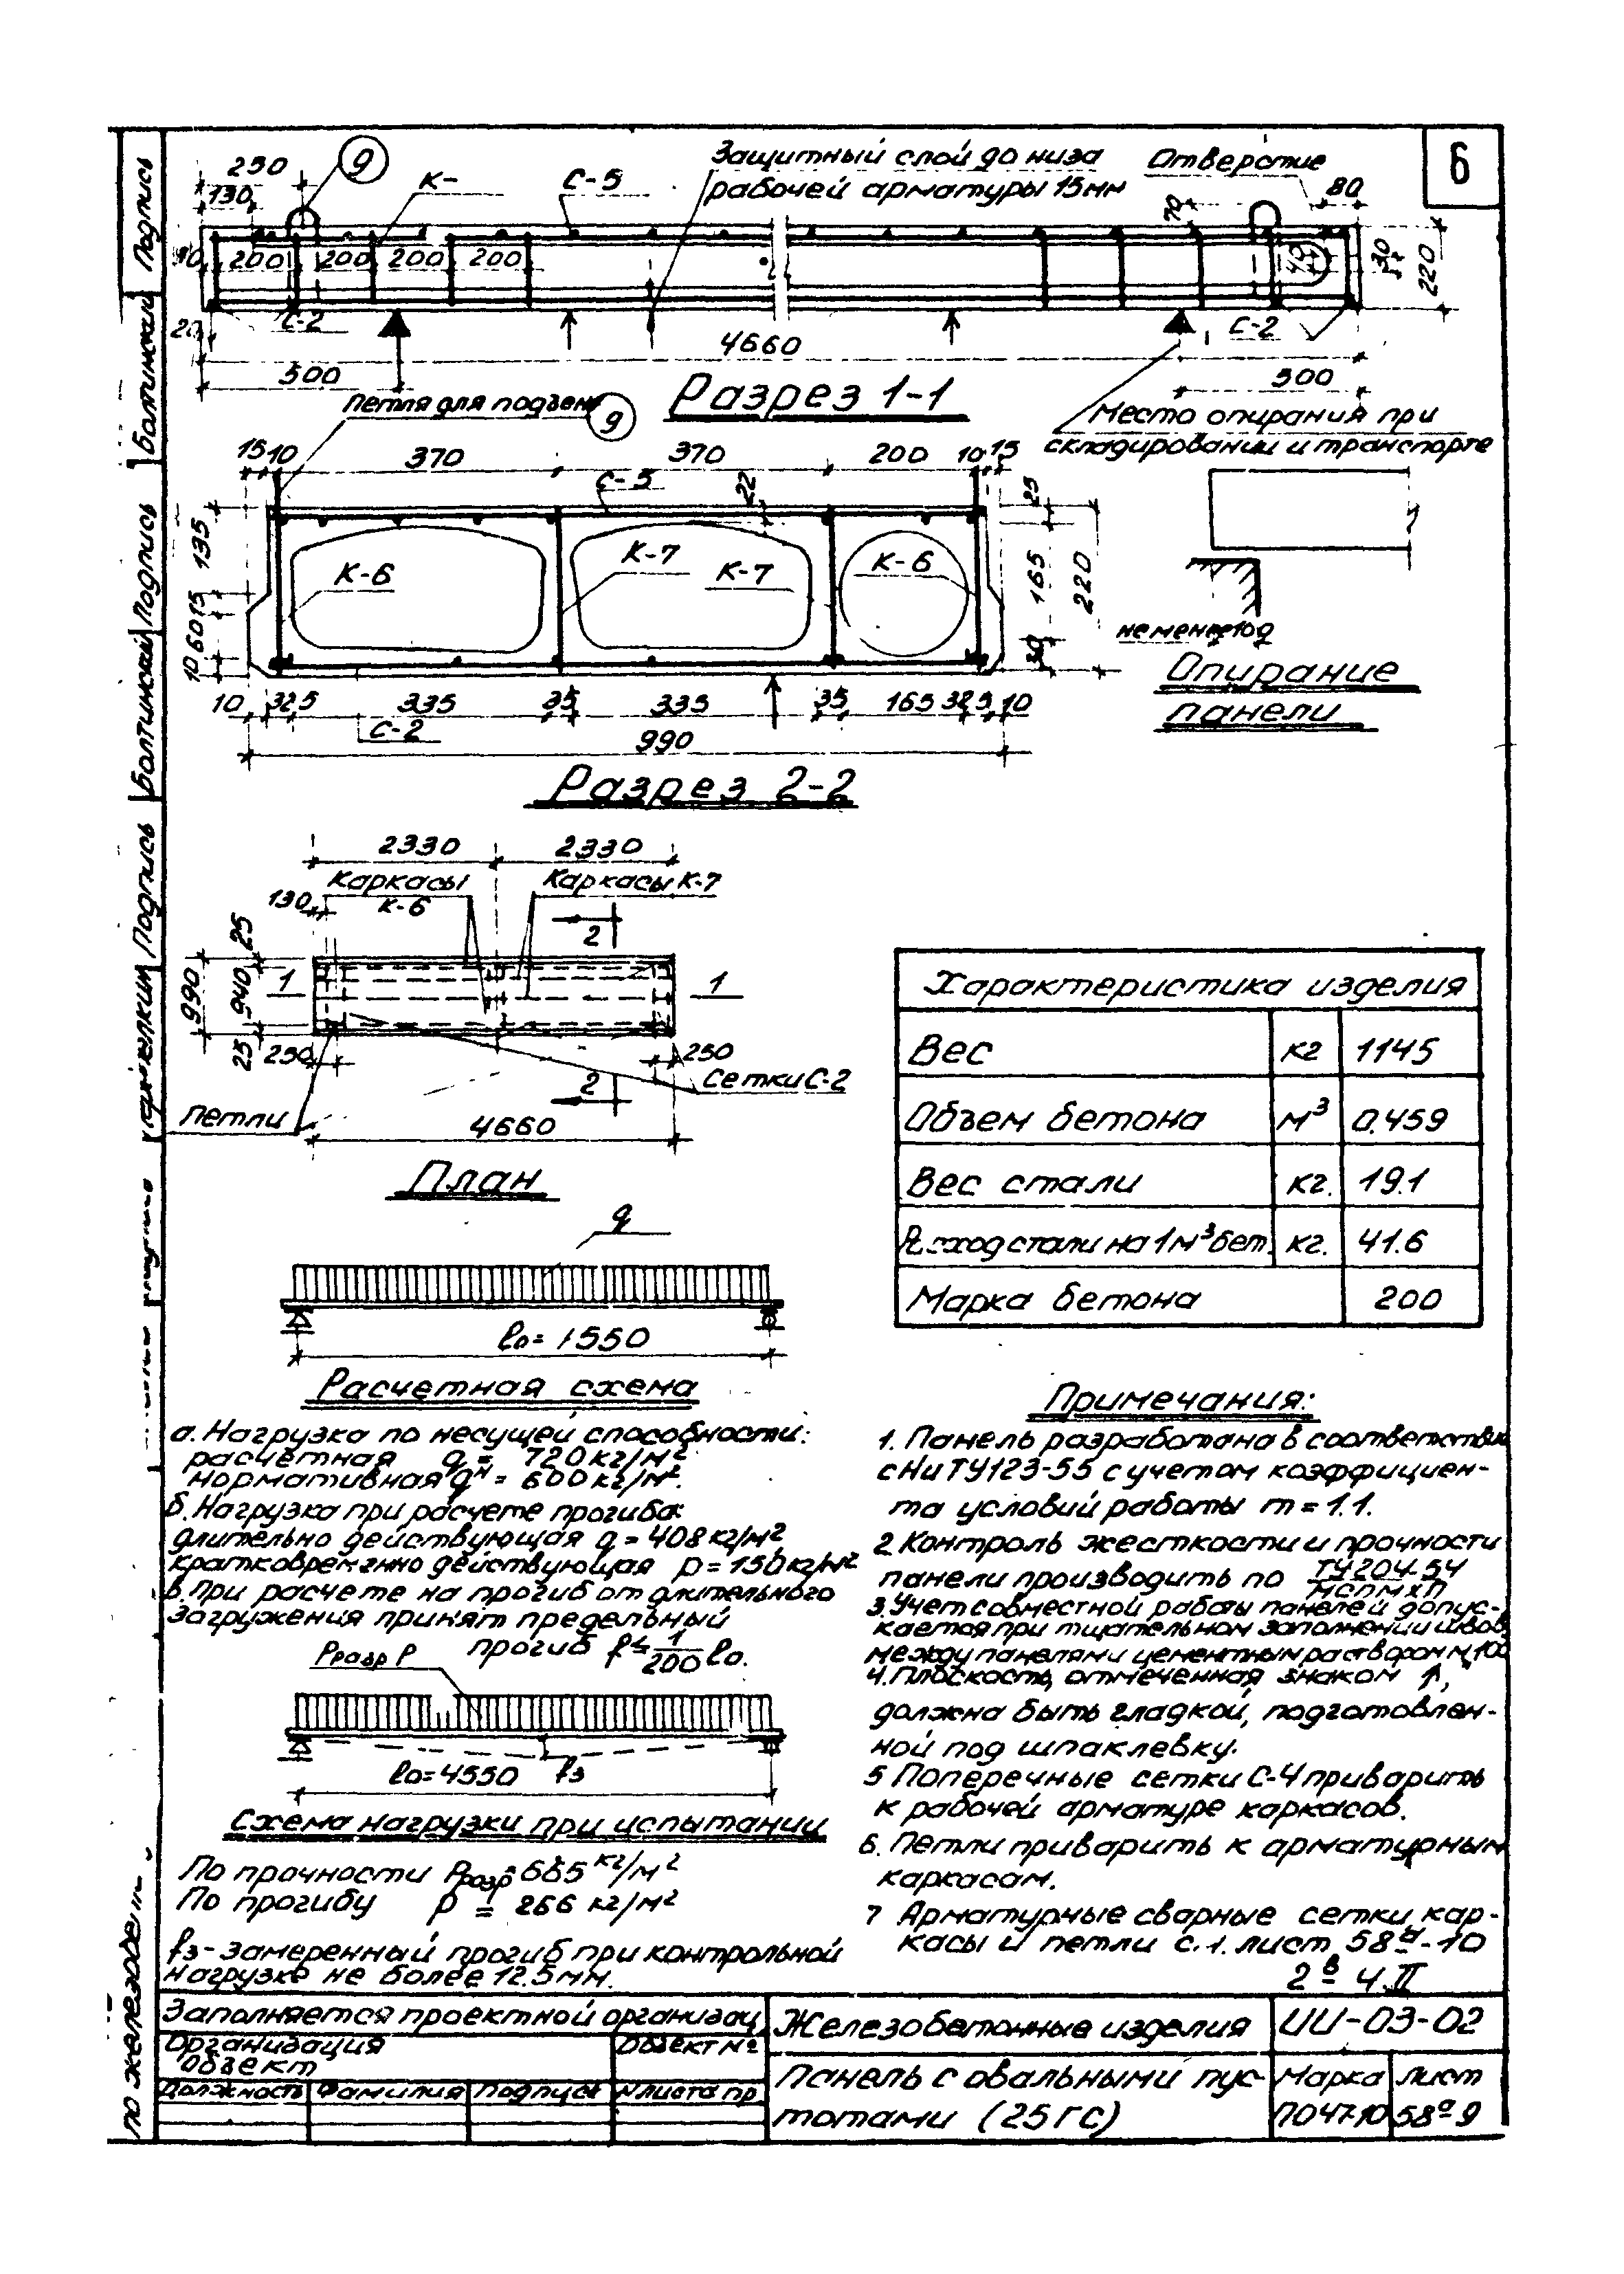 6
250
9
К-
С-5
Защитный слой до низа
рабочей арматуры 15мм
Отверстие
80
130
70
200
200
200
200
40
30
220
20
С-2
4660
С-2
500
500
Разрез 1-1
Место опирания при
складировании и транспорте
Петля для подъема
9
15 10
370
370
200
10 15
С-5
22
25
135
К-6
К-7
К-7
К-6
165
220
15
60
10
30
не менее 100
Опирание
панели
10
325
335
35
335
35
165
325
10
С-2
990
Разрез 2-2
2330
2330
Каркасы
К-6
Каркасы К-7
130
2
25
990
940
1
1
25
250
250
2
Сетки С-2
Петли
4660
План
Характеристика изделия
Вес кг 1145
Объем бетона м³ 0.459
Вес стали кг. 19.1
стали на 1м³ бет. кг. 41.6
Марка бетона 200
q
550
Расчетная схема
а. Нагрузка по несущей способности:
расчетная q = 720 кг/м²
нормативная qᴴ = 600 кг/м².
б. Нагрузка при расчете прогиба:
длительно действующая q = 408 кг/м²
кратковременно действующая р = 150 кг/м²
в. При расчете на прогиб от длительного
загружения принят предельный
прогиб f ≤ 1/200 ℓ₀.
Рразр Р
ℓ₀=4550 f₃
Схема нагрузки при испытании
По прочности Рразр = кг/м²
По прогибу р = 266 кг/м²
f₃ - замеренный прогиб при контрольной
нагрузке не более 12.5 мм.
Примечания:
1. Панель разработана в соответствии
с НиТУ123-55 с учетом коэффициен-
та условий работы m = 1.1.
2. Контроль жесткости и прочности
панели производить по ТУ204-54/МСПМХП
3. Учет совместной работы панелей допус-
кается при тщательном заполнении швов
между панелями цементным раствором М100
4. Плоскость, отмеченная знаком ↑,
должна быть гладкой, подготовлен-
ной под шпаклевку.
5 Поперечные сетки С-4 приварить
к рабочей арматуре каркасов.
6. Петли приварить к арматурным
каркасам.
7 Арматурные сварные сетки, кар-
касы и петли с.1. лист 58ᵃ-10
2ᴮ ч. II
Заполняется проектной организац.
Организация
Объект
Объект №
Должность Фамилия Подпись № листа пр.
Железобетонные изделия
ИИ-03-02
Панель с овальными пус-
тотами (25ГС)
Марка
ПО47-10
Лист
58ᵃ-9
Подпись
Болтинский
Подпись
Болтинский
Подпись
по железобе